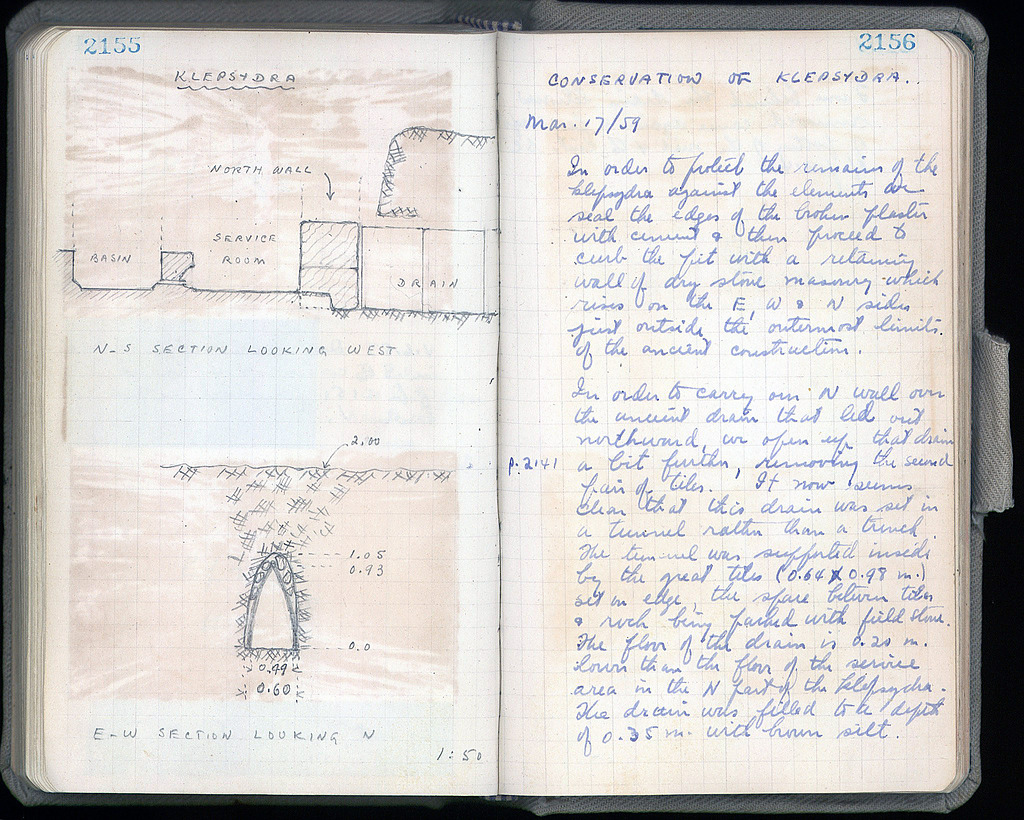 2155
KLEPSYDRA
NORTH WALL
SERVICE
ROOM
BASIN
DRAIN
N-S SECTION LOOKING WEST
2.00
1.05
0.93
0.0
0.49
0.60
E-W SECTION LOOKING N
1:50
2156
CONSERVATION OF KLEPSYDRA..
Mar. 17/59
In order to protect the remains of the
klepsydra against the elements we
seal the edges of the broken plaster
with cement & then proceed to
curb the pit with a retaining
wall of dry stone masonry which
rises on the E, W & N sides
just outside the outermost limits
of the ancient construction.
In order to carry our N wall over
the ancient drain that led out
northward, we open up that drain
p. 2141
a bit further, removing the second
pair of tiles. It now seems
clear that this drain was set in
a tunnel rather than a trench.
The tunnel was supported inside
by the great tiles (0.64 x 0.98 m.)
set on edge, the space between tiles
& rock being packed with field stone.
The floor of the drain is 0.20 m.
lower than the floor of the service
area in the N part of the klepsydra.
The drain was filled to a depth
of 0.35 m. with brown silt.